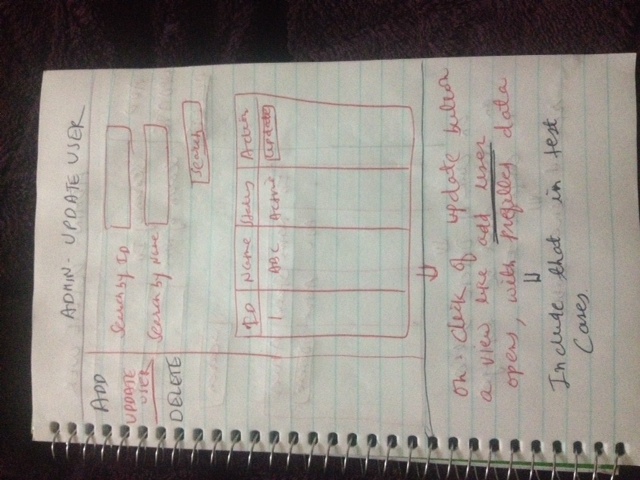 ADMIN - UPDATE USER
ADD
UPDATE
USER
DELETE
Search by ID
Search by Name
Search
ID Name Status Action
1 ABC Active Update
on click of update button
a view like add user
opens, with prefilled data
Include that in test
Cases.